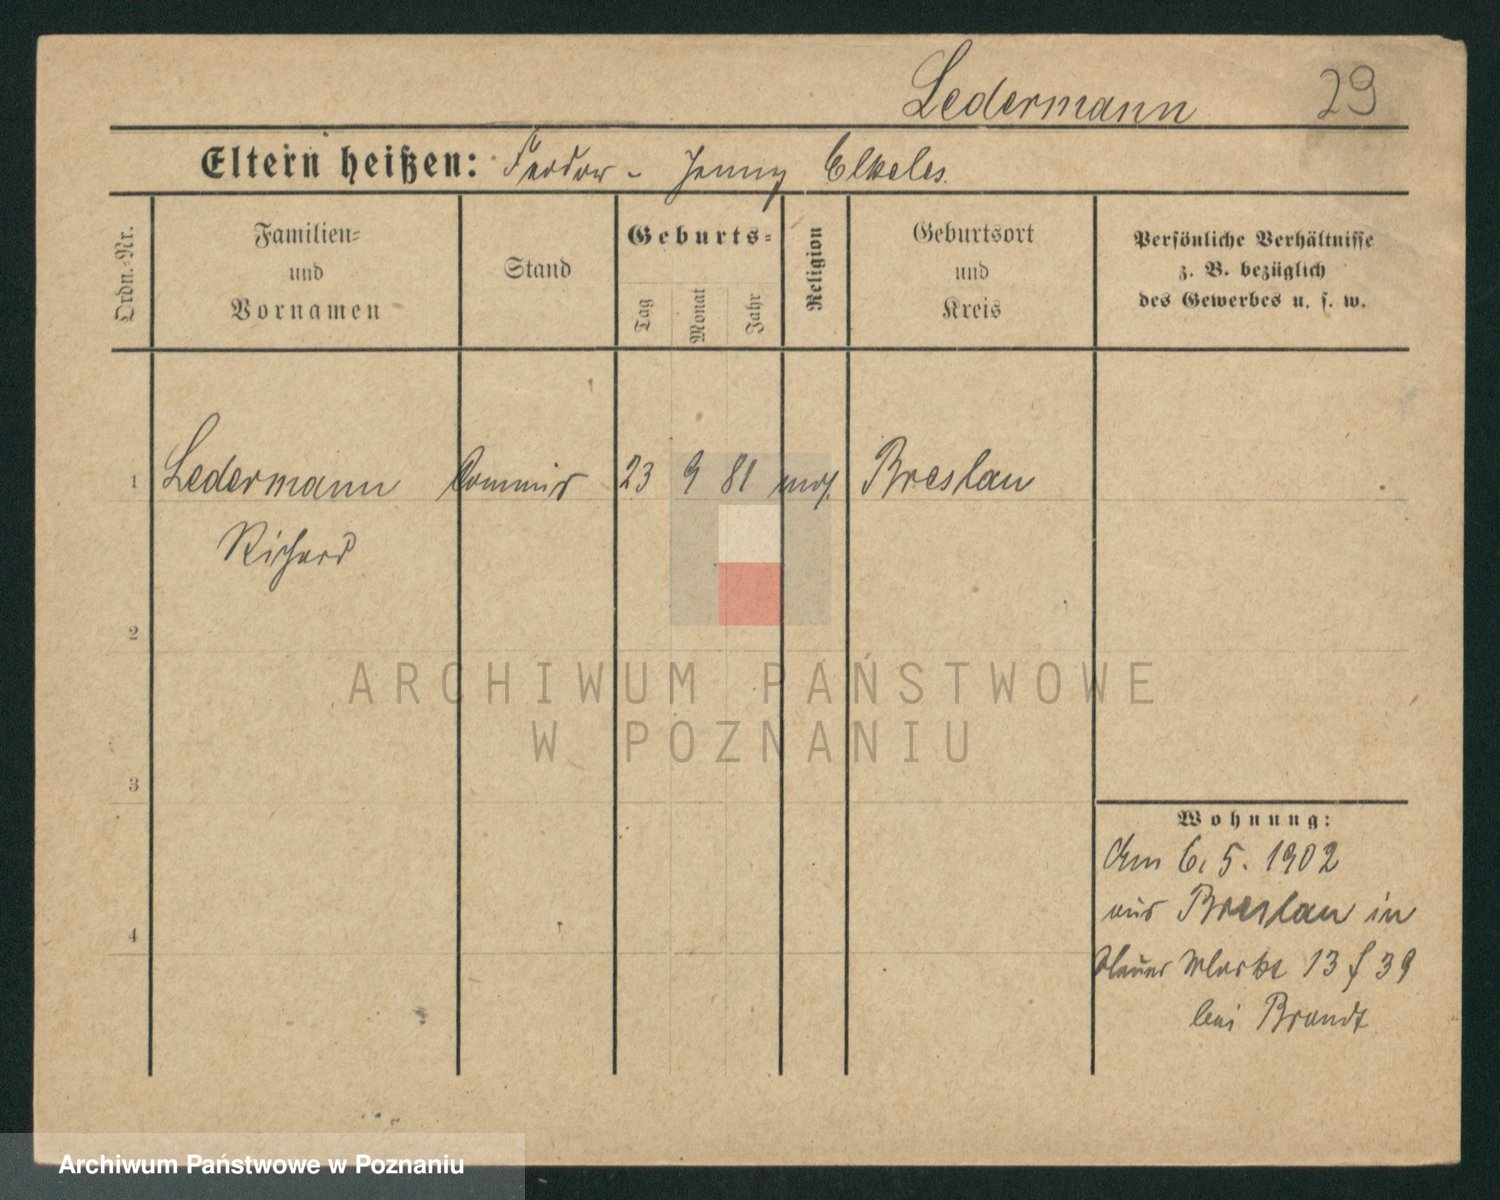 Ledermann 29
Eltern heißen: Feodor - Jenny Elkeles.
Ordn.-Nr.
Familien-
und
Vornamen
Stand
Geburts-
Tag
Monat
Jahr
Religion
Geburtsort
und
Kreis
Persönliche Verhältnisse
z. B. bezüglich
des Gewerbes u. s. w.
1 Ledermann Commis 23 9 81 mos. Breslau
Richard
2
3
4
Wohnung:
Am 6. 5. 1902
aus Breslau in
Markt 13 f 39
bei Brandt
ARCHIWUM PAŃSTWOWE
W POZNANIU
Archiwum Państwowe w Poznaniu